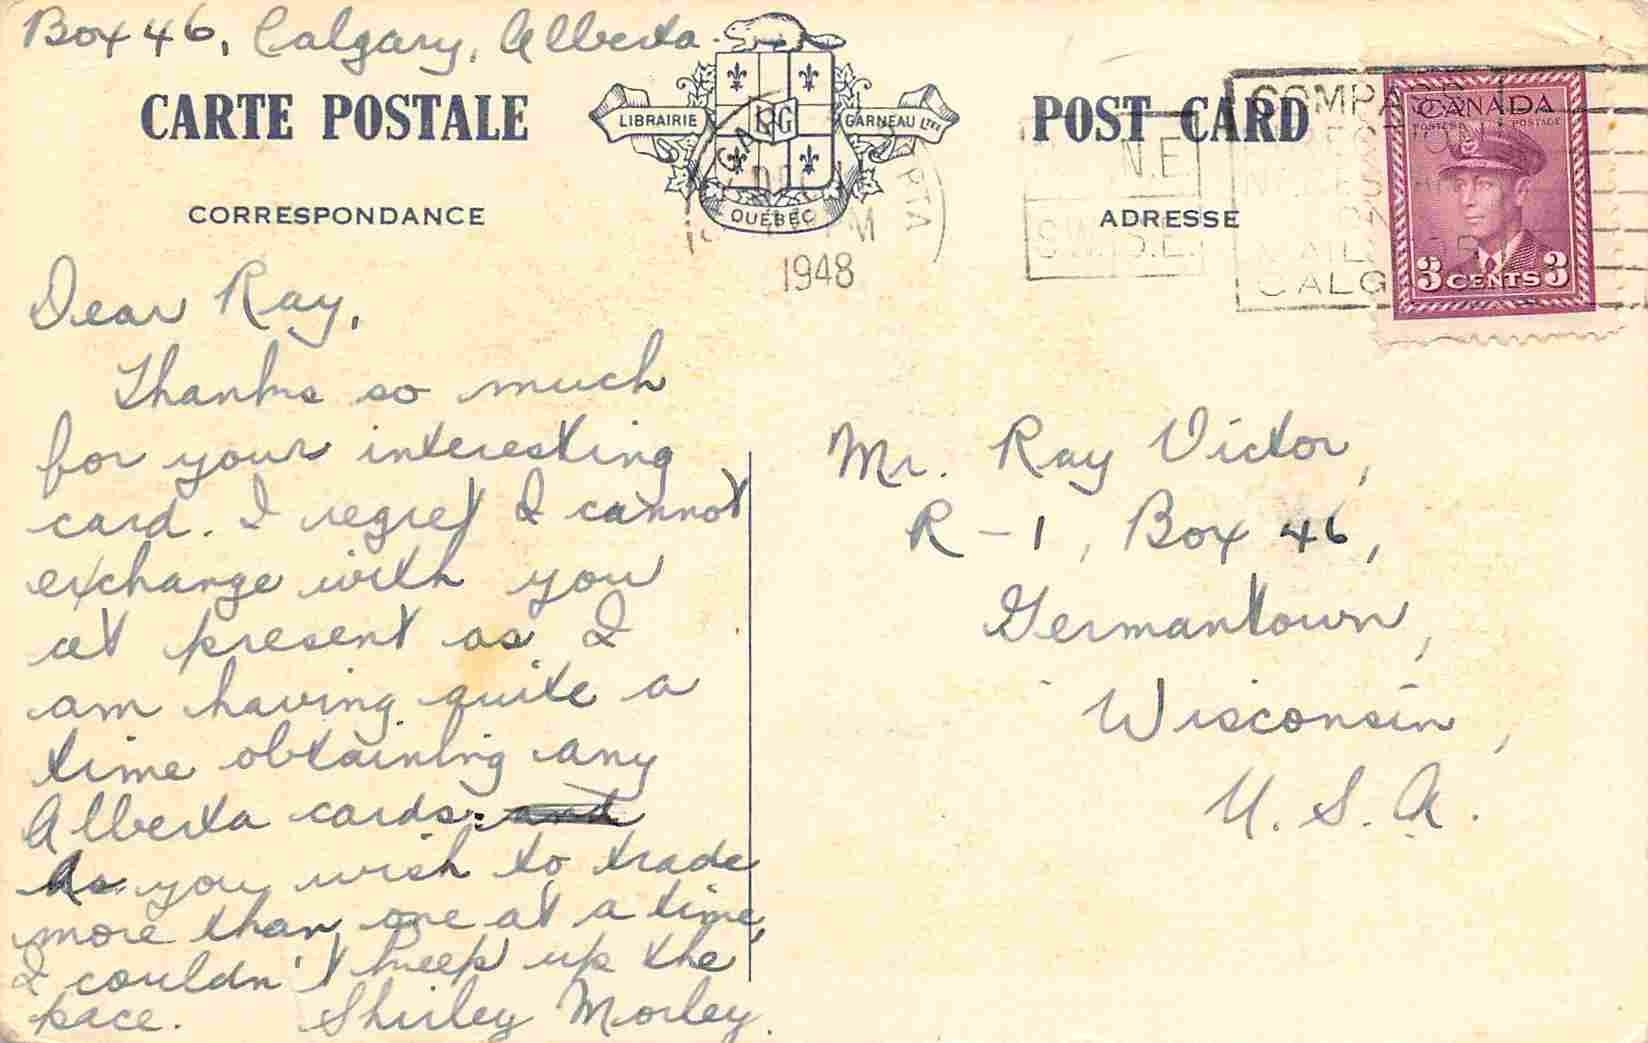 Box 46, Calgary, Alberta.
CARTE POSTALE
POST CARD
LIBRAIRIE
LG
GARNEAU LTÉE
QUÉBEC
CORRESPONDANCE
ADRESSE
DEC
PM
1948
N.E.
S.W.
CANADA
POSTES POSTAGE
3 CENTS 3
Dear Ray,
Thanks so much
for your interesting
card. I regret I cannot
exchange with you
at present as I
am having quite a
time obtaining any
Alberta cards. and
As you wish to trade
more than one at a time,
I couldn't keep up the
pace. Shirley Morley.
Mr. Ray Victor,
R-1, Box 46,
Germantown,
Wisconsin,
U.S.A.